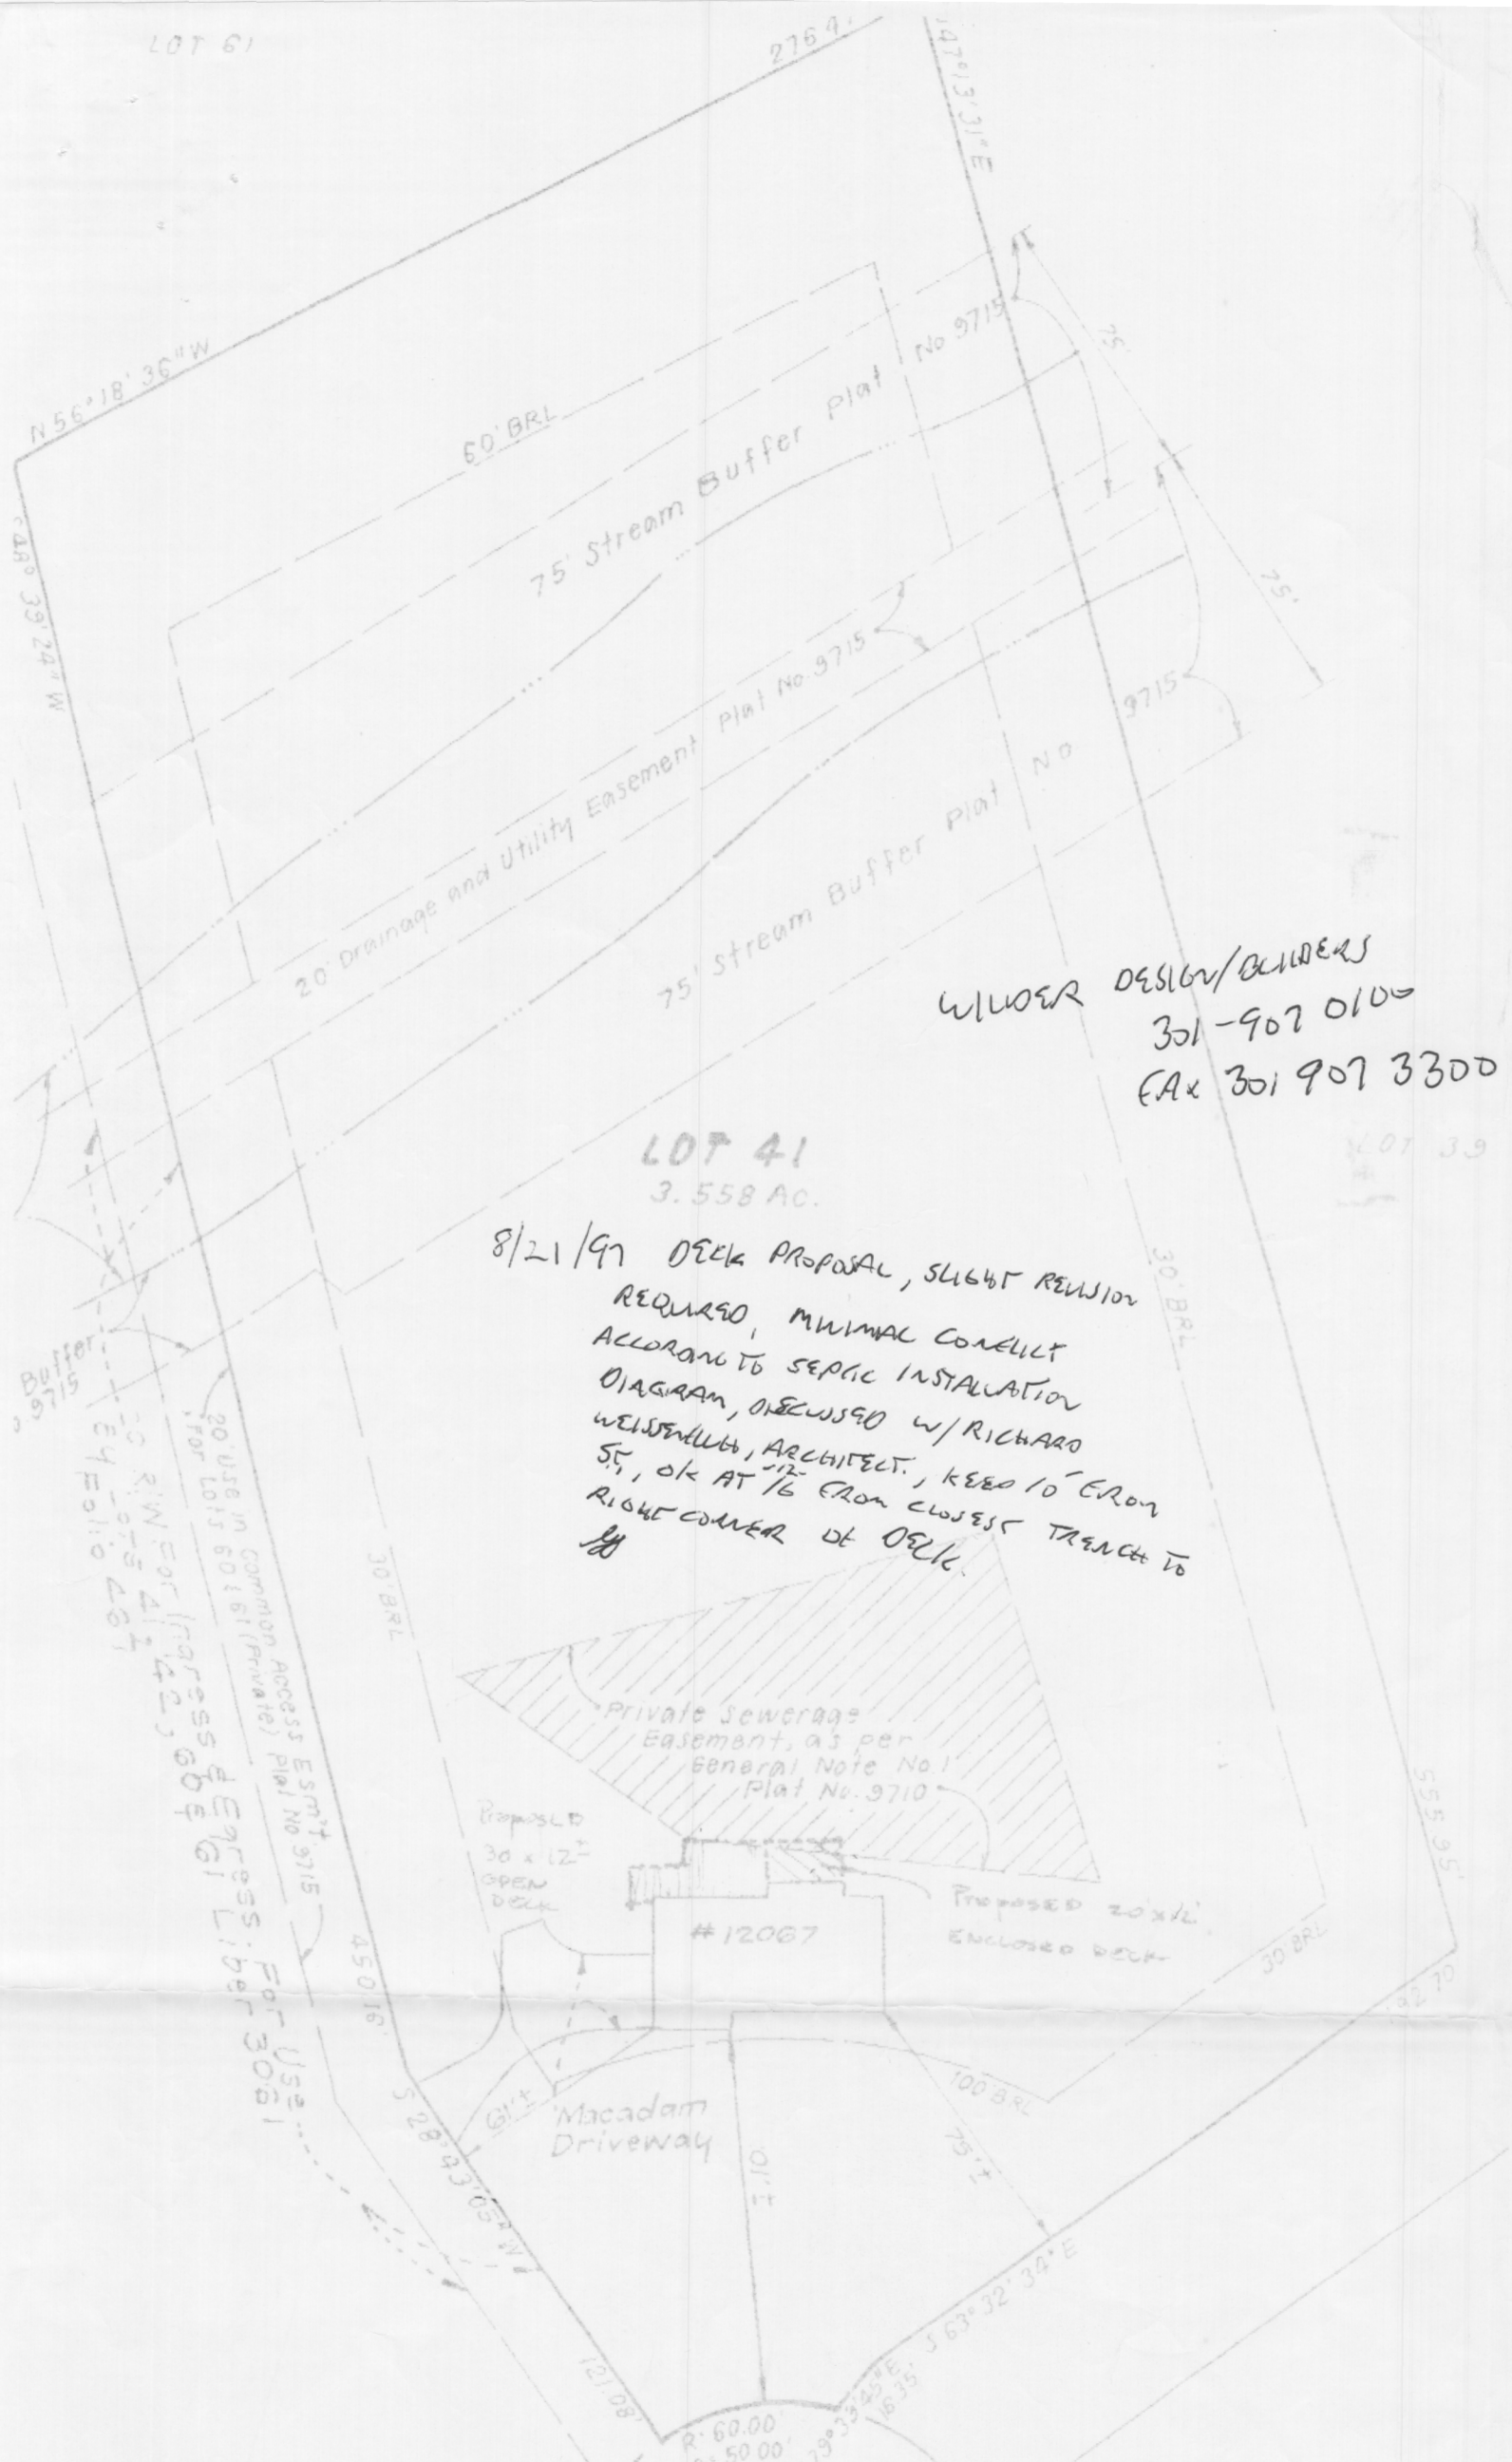 LOT 61
276 9.
47°13'31"E
N56°18'36"W
60' BRL
75' Stream Buffer Plat No 9715
75'
39'24" W
20' Drainage and Utility Easement Plat No. 9715
75'
75' Stream Buffer Plat No 9715
DESIGN/BUILDERS
301-907 0100
FAX 301 907 3300
LOT 41
3.558 AC.
LOT 39
8/21/97 DECK PROPOSAL, SLIGHT REVISION
REQUIRED, MINIMAL CONFLICT
ACCORDING TO SEPTIC INSTALLATION
DIAGRAM, DISCUSSED W/RICHARD
ARCHITECT., KEEP 10' FROM
S.T., OK AT FROM CLOSEST TRENCH TO
RIGHT CORNER OF DECK.
30' BRL
Buffer
9715
20' Use in Common Access Esm't
For Lots 60 & 61 (Private) Plat No 9715
R/W For Ingress & Egress: For Use
Lots 41, 42, 60 & 61 Liber 3081
Folio 281
30' BRL
Private Sewerage
Easement, as per
General Note No. 1
Plat No. 9710
PROPOSED
30 x 12±
OPEN
DECK
#12067
PROPOSED 20 x 12'
ENCLOSED DECK
555.95'
30' BRL
192.70
450.16'
100' BRL
61'±
Macadam
Driveway
75'±
S 28°43'05" W
S 63°32'34" E
121.08'
R: 60.00'
50.00'
29°33'45"E
16.35'